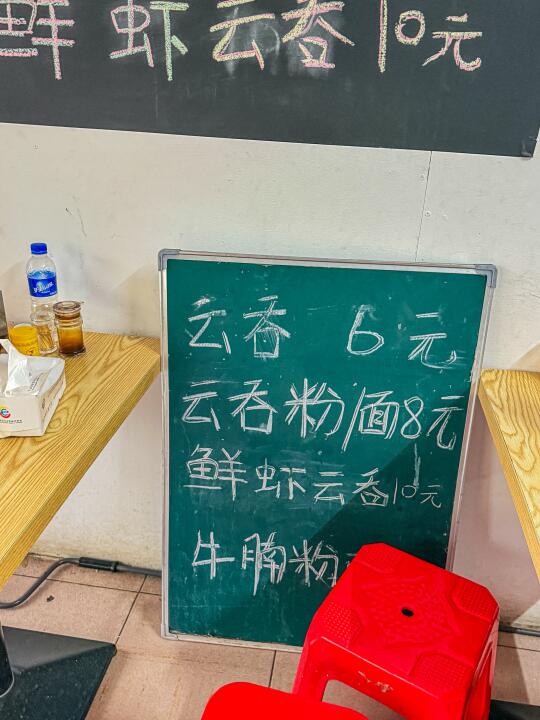 鲜虾云吞10元
云吞 6元
云吞粉/面8元
鲜虾云吞10元
牛腩粉